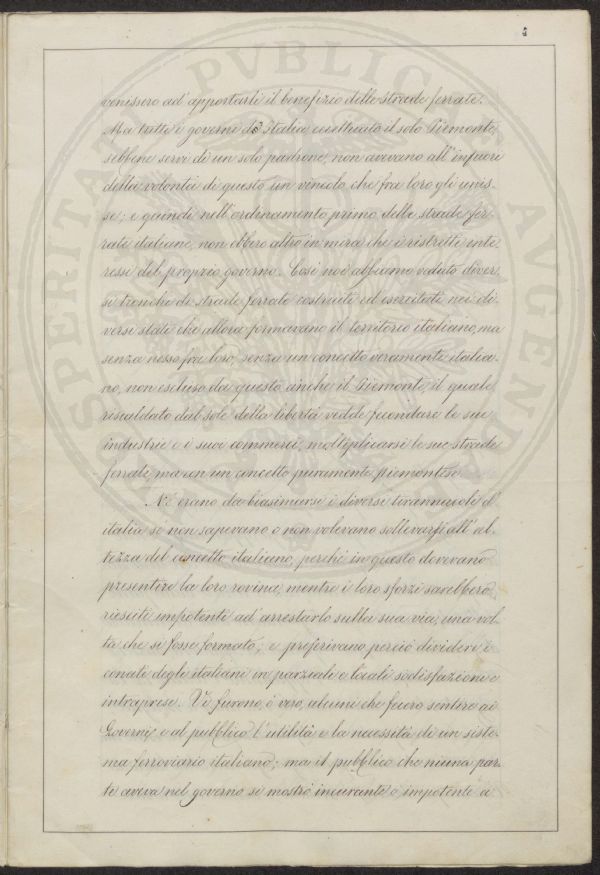 4
venissero ad apportarli il benefizio delle strade ferrate.
Ma tutti i governi d'Italia, eccettuato il solo Piemonte,
sebbene servi di un solo padrone, non avevano all'infuori
della volontà di questo un vincolo che fra loro gli unis-
se; e quindi nell'ordinamento primo delle strade fer-
rate italiane, non ebbero altro in mira che i ristretti inte-
ressi del proprio governo. Così noi abbiamo veduto diver-
si tronchi di strade ferrate costruiti ed esercitati nei di-
versi stati che allora formavano il territorio italiano, ma
senza nesso fra loro, senza un concetto veramente italia-
no, non escluso da questo anche il Piemonte, il quale
riscaldato dal sole della libertà vedde fecondare le sue
industrie e i suoi commerci, moltiplicarsi le sue strade
ferrate, ma con un concetto puramente piemontese.
Nè erano da biasimarsi i diversi tirannucoli d'
italia se non sapevano o non volevano sollevarsi all'al-
tezza del concetto italiano, perchè in questo dovevano
presentire la loro rovina, mentre i loro sforzi sarebbero
riesciti impotenti ad arrestarlo sulla sua via, una vol-
ta che si fosse formato; e preferivano perciò dividere i
conati degli italiani in parziali e locali sodisfazioni e
intraprese. Vi furono, è vero, alcuni che fecero sentire ai
Governi, e al pubblico l'utilità e la necessità di un siste-
ma ferroviario italiano; ma il pubblico che niuna par-
te aveva nel governo si mostrò incurante o impotente a
PROSPERITATI PVBLICAE AVGENDAE